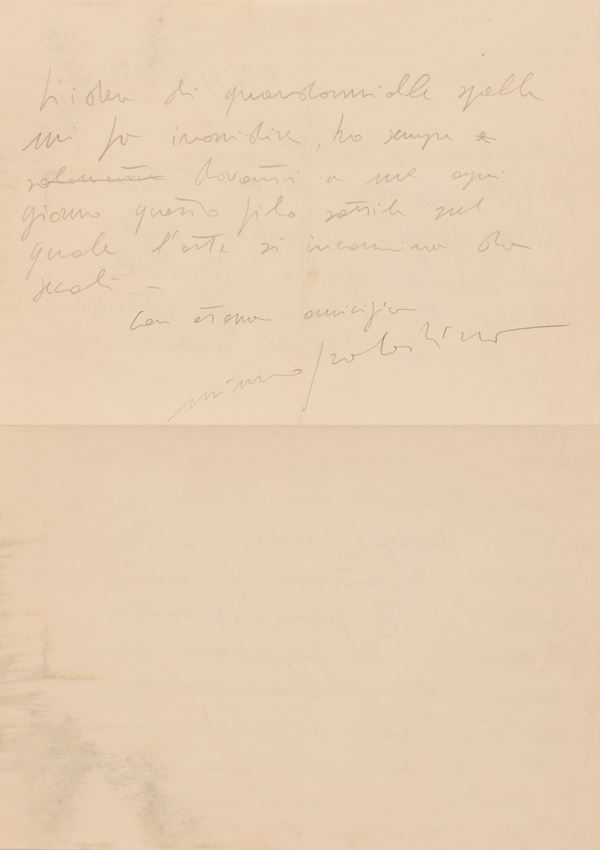 L'idea di guardarmi alle spalle
mi fa inorridire, ho sempre e
solamente davanti a me ogni
giorno questo filo sottile sul
quale l'arte si incammina da
secoli –
con eterna amicizia
mimmo paladino